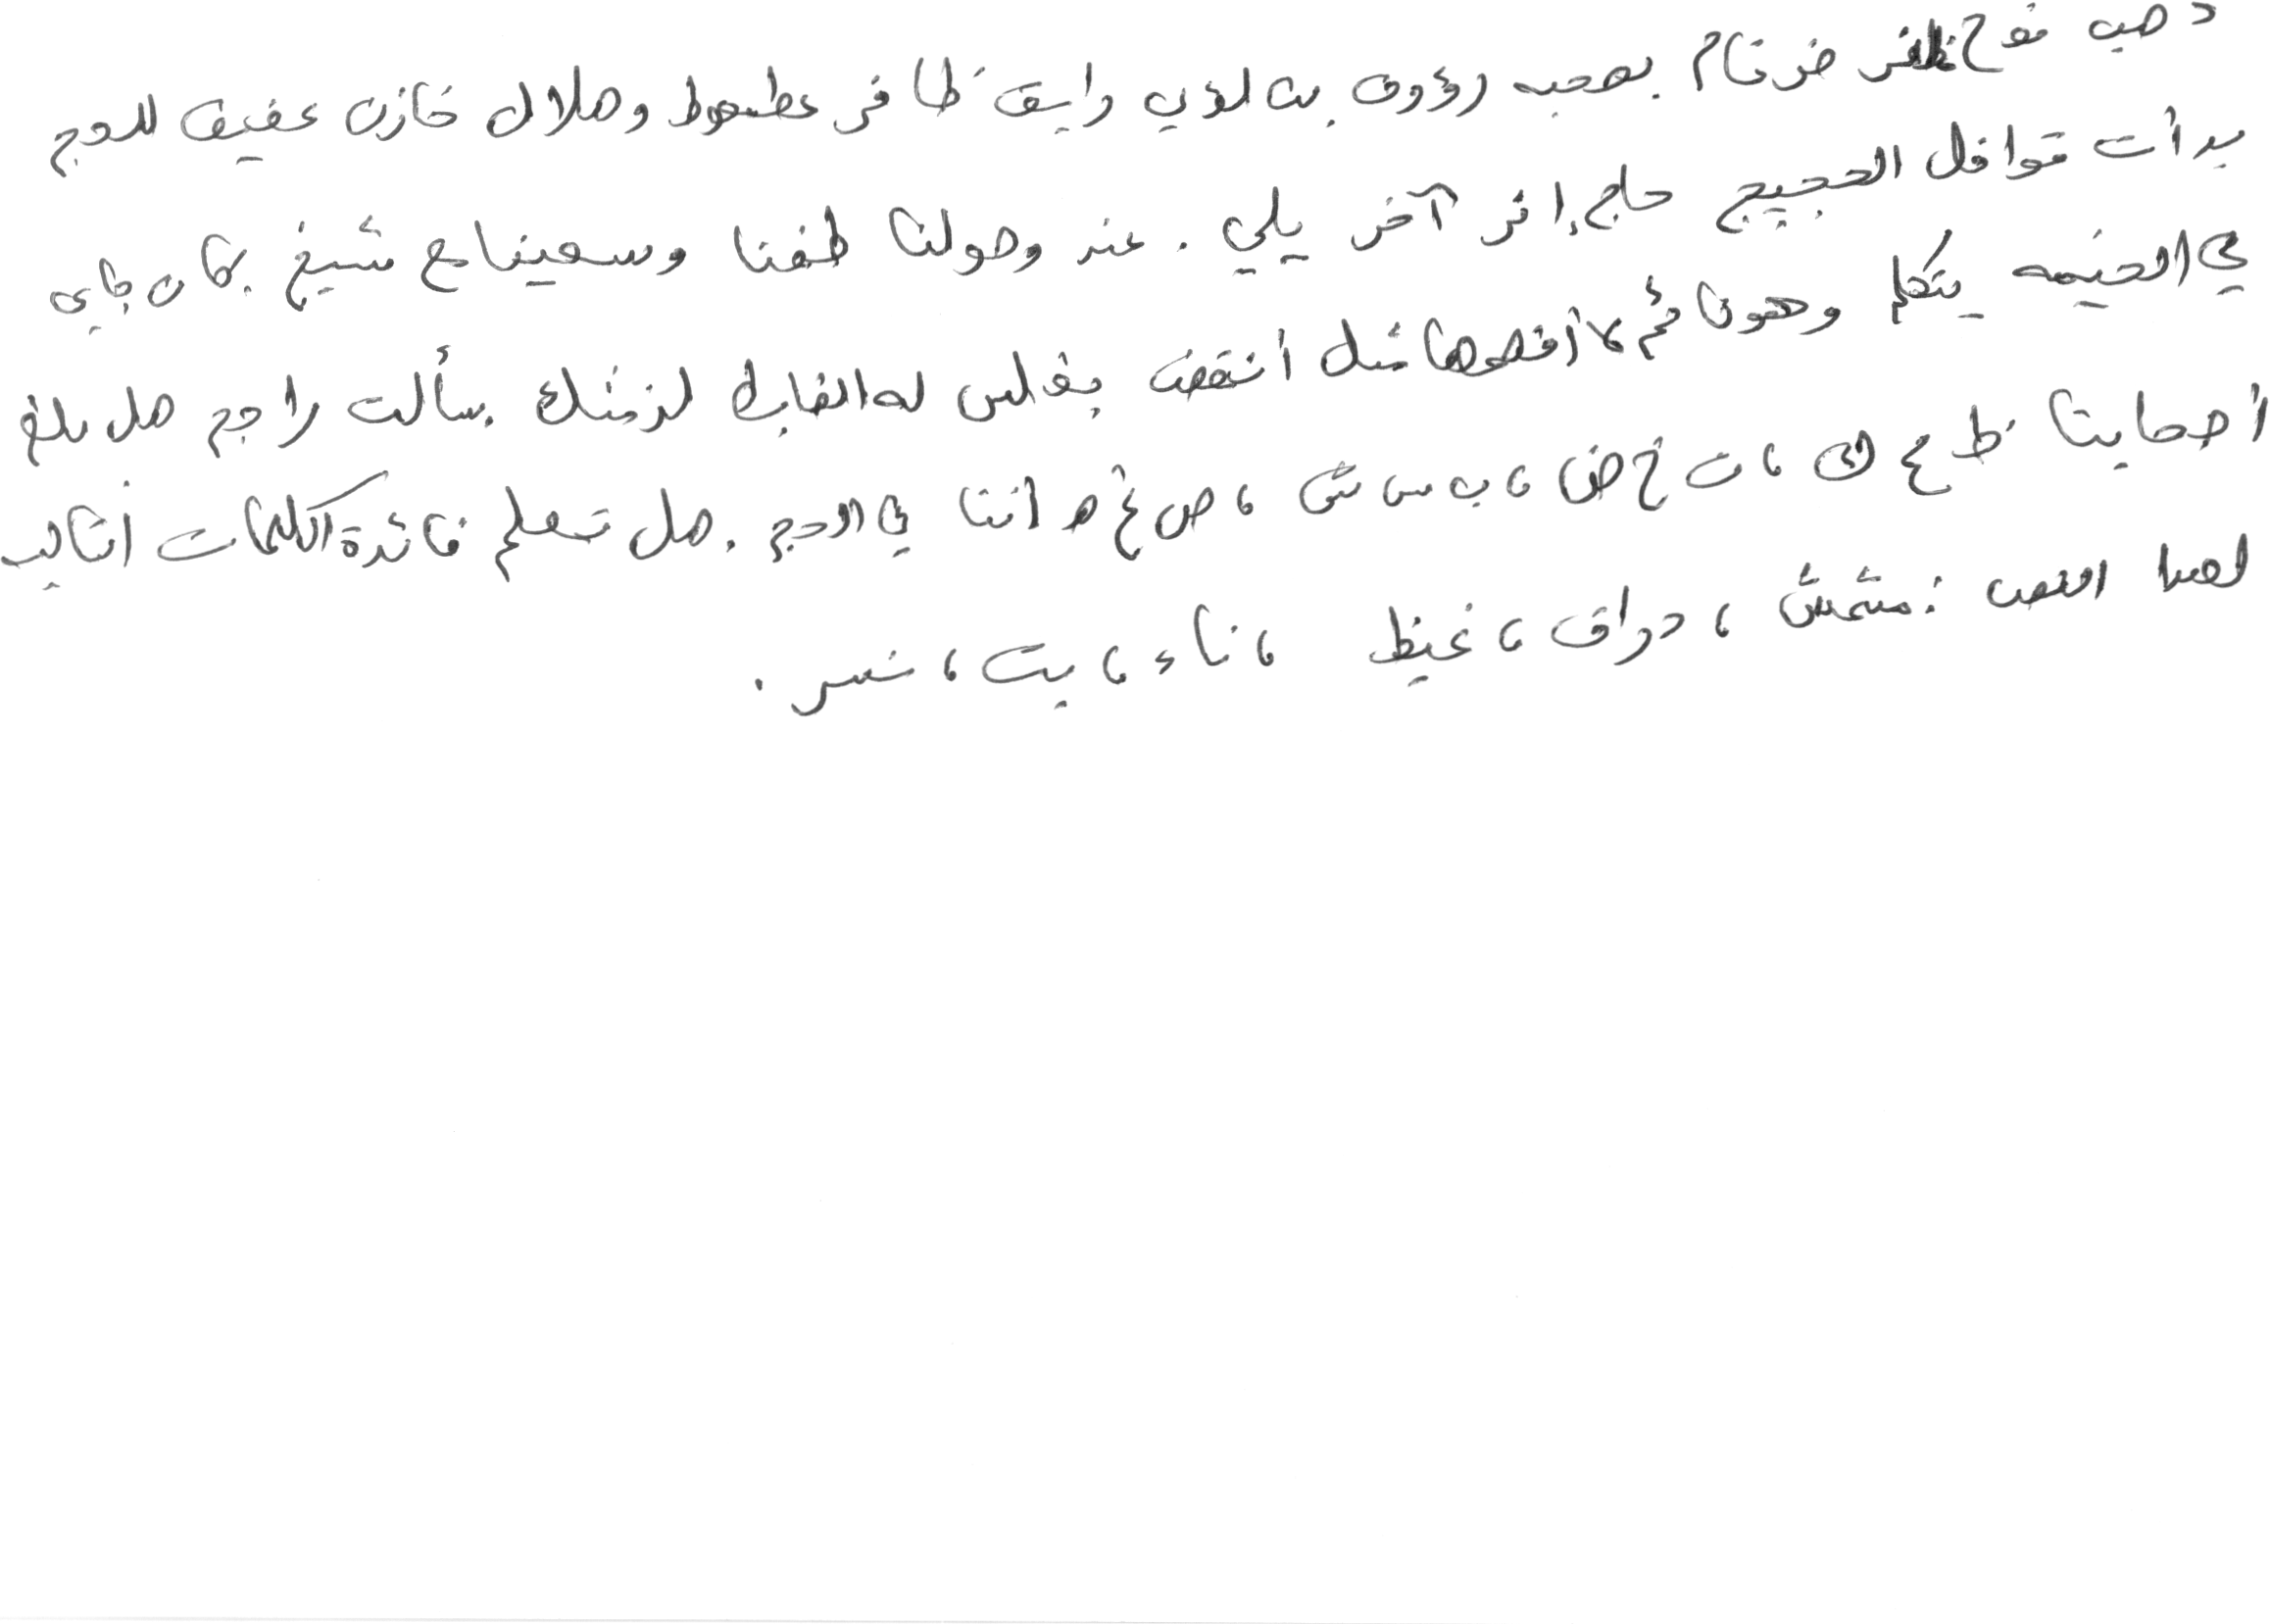 ذهب نوح ظافر ضرغام بصحبه رؤوف بن لؤي رايق ظافر عطعوط وهلال خازن عفيف للحج
بدأت قوافل الحجيج حاج إثر آخر يلي . عند وصولنا طفنا وسعينا مع شيخ كان جاي
في الخيمه يتكلم وهو نائم لا أقصوها شك انتقضت بغلس له القابك لزمنك . سألت راجح هل بلغ
أصحابنا ط ع لك ، ث خ ض ، ب س ش ، ص غ هـ اننا في الحج . هل تعلم فائدة الكلمات أتتالية
لهذا النص : مشمش ، دراق ، غيظ ، ناء ، بت ، نسر .